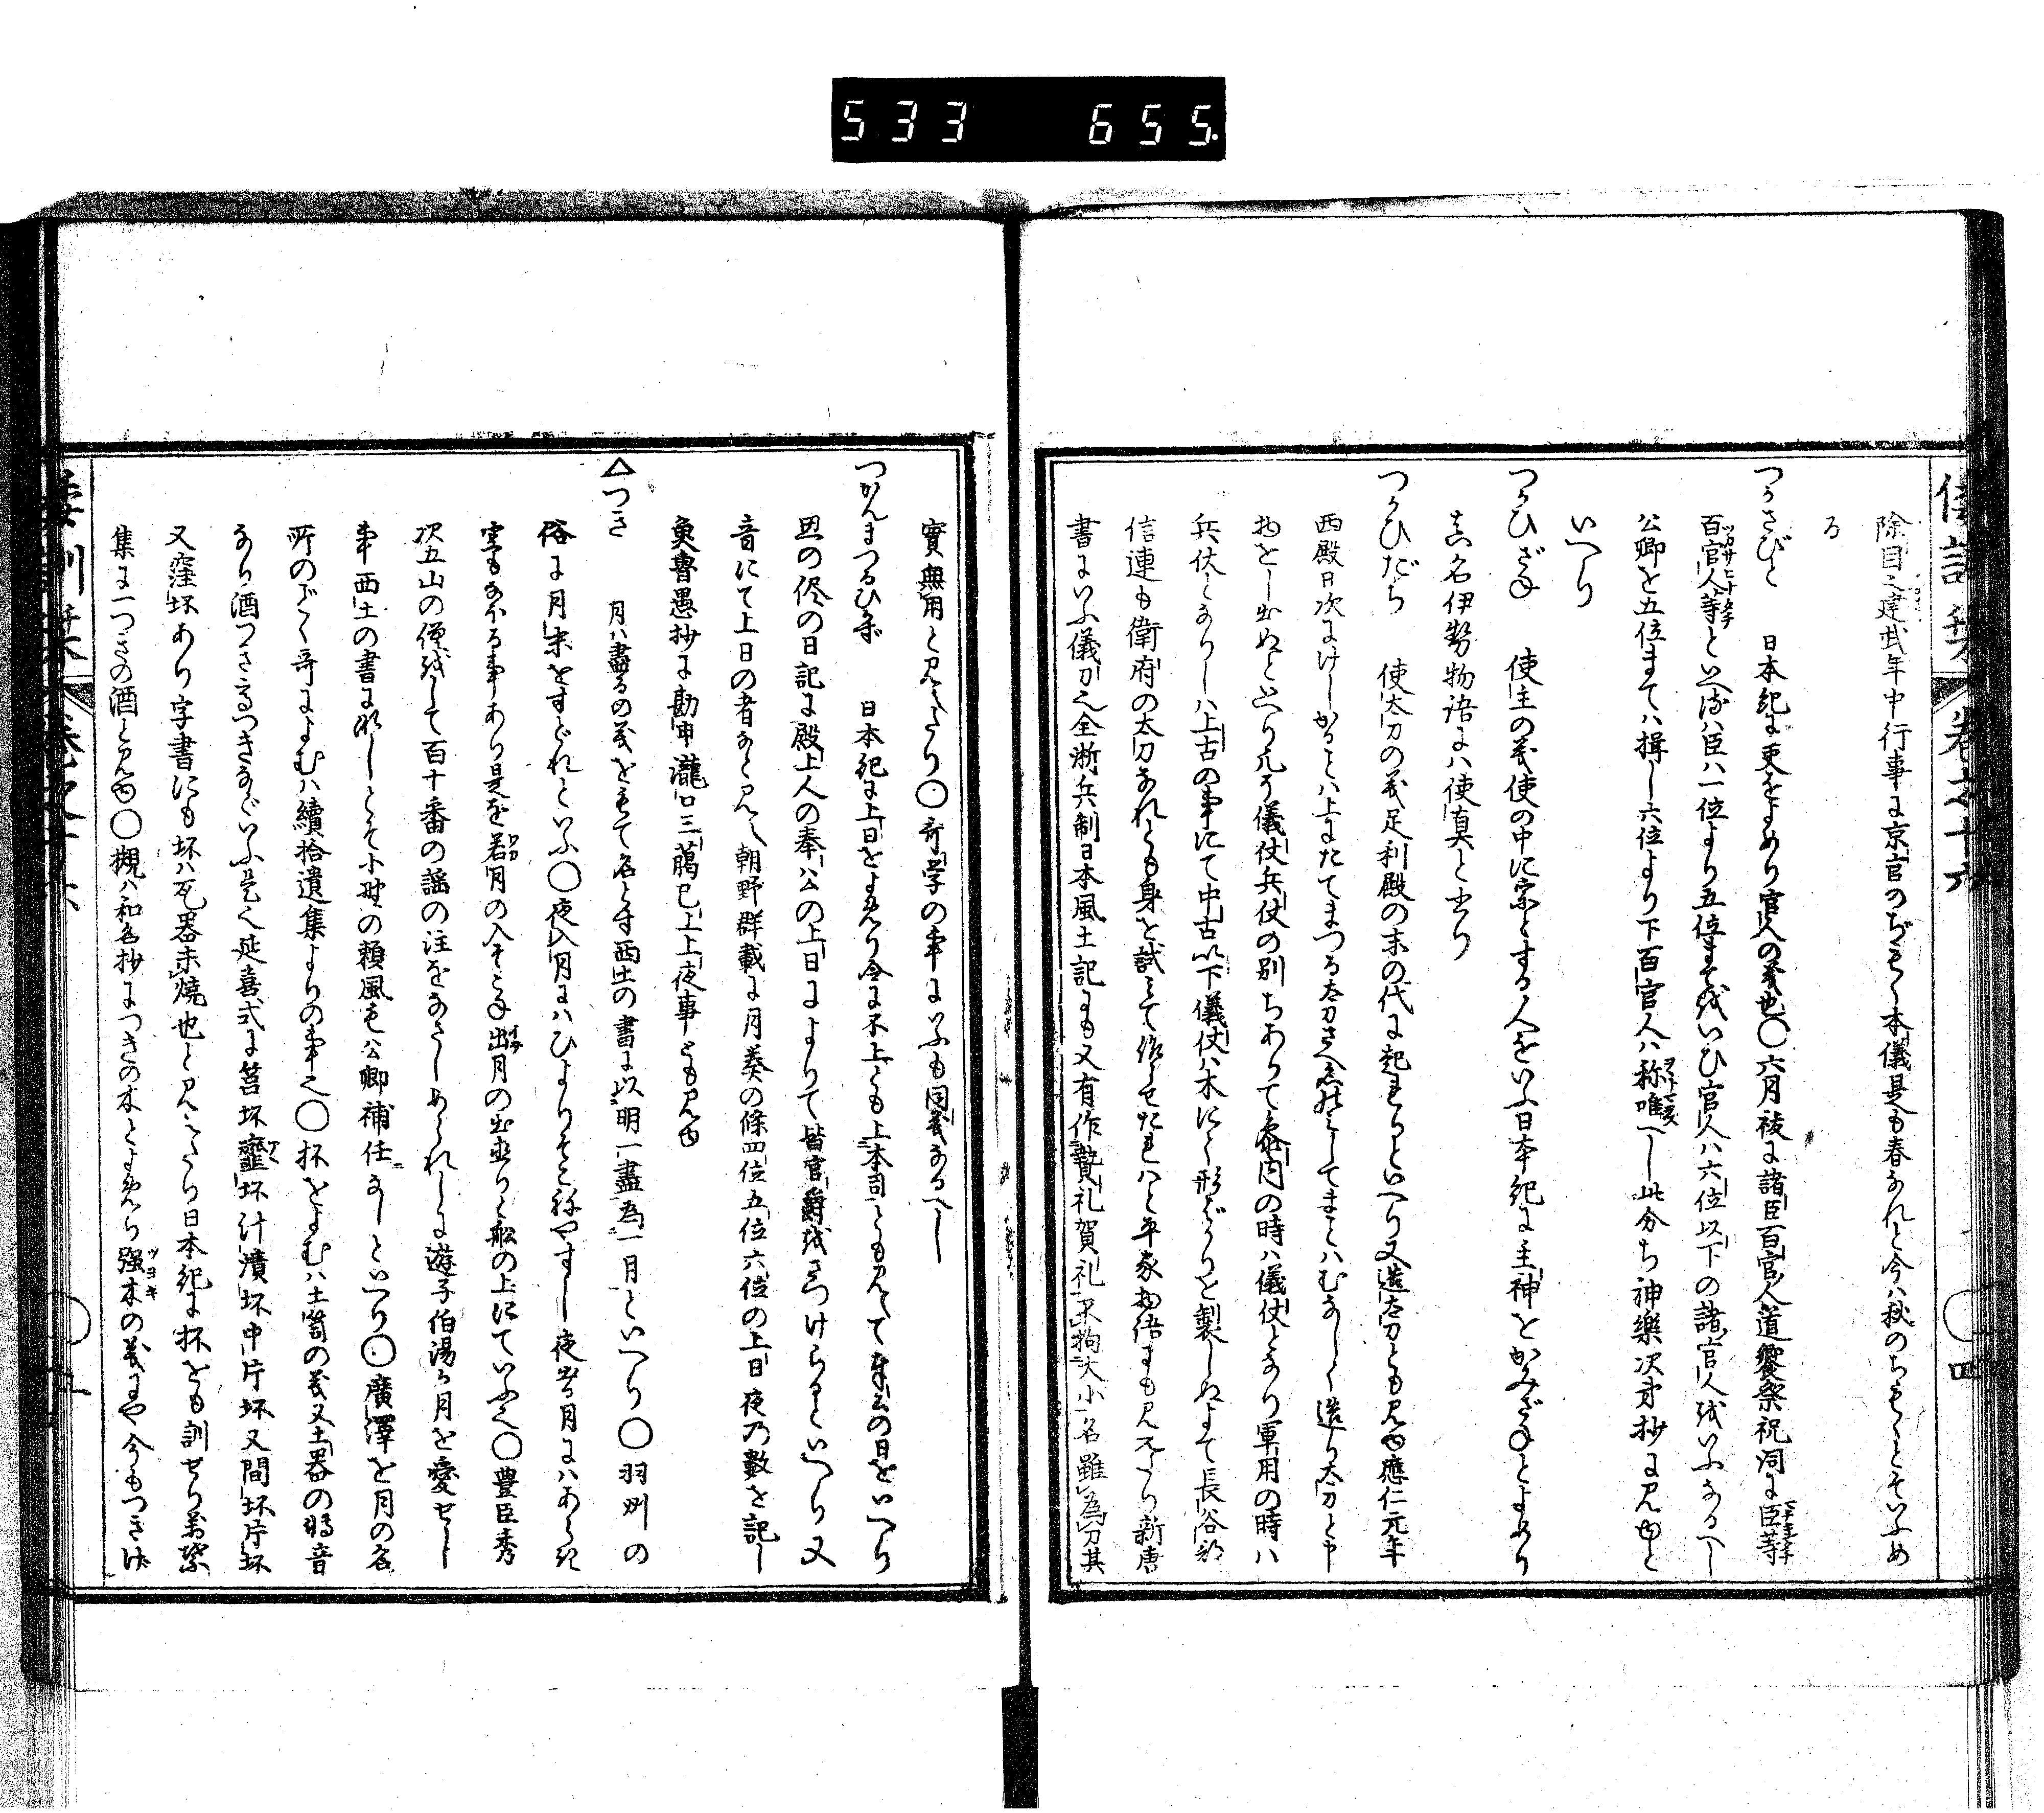 533 655
除目之建武年中行事に京官のぢもく本儀是も春なれと今ハ秋のちもくとそいふめ
る
つかさびと 日本紀に吏をよめり官人の義也〇六月祓に諸臣百官人道饗祭祝詞に臣等
百官人等といへるハ臣ハ一位より五位まてをいひ官人ハ六位以下の諸官人をいふなるへし
公卿と五位まてハ揖し六位より下百官人ハ称唯へし此分ち神樂次第抄に見ゆと
いへり
つかひざね 使主の義使の中に宗とする人をいふ日本紀に主神をかみざねとよめり
真名伊勢物語にハ使真と書り
つかひだち 使太刀の義足利殿の末の代に起れりといへり又造太刀とも見ゆ應仁元年
西殿日次にけしかることハ上にたてまつる太刀さへ
してまことハむなしく造り太刀と申
物をし出ぬといへり元より儀仗兵仗の別ちありて参内の時ハ儀仗となり軍用の時ハ
兵仗となりしハ上古の事にて中古以下儀仗ハ木にて形ばかりを製しぬよて長谷部
信連も衛府の太刀なれとも身を試みて作らせたれハと平家物語にも見えたり新唐
書にいふ儀刀也全浙兵制日本風土記にも又有作贄礼賀礼不拘大小名雖為刀其
實無用と見えたり〇哥学の事にいふも同義なるへし
つかへまつるひ 日本紀に上日をよめり令に不上とも上本司とも見えて奉公の日をいへり
思の侭の日記に殿上人の奉ハ公の上日によりて皆官爵をさつけらるといへり又
音にて上日の者なと見ゆ朝野群載に月奏の條四位五位六位の上日夜の數を記し
東曹愚抄に勘申瀧口三﨟已上上夜事とも見ゆ
△つき 月ハ盡るの義をもて名とす西土の書に以明一盡為一月といへり〇羽州の
俗に月末をすどれといふ〇夜入月にハひよりそこねやすし夜出る月にハあらき
雲もなほる事あり是を若月の入そこね出月の出直りと船の上にていふ也〇豊臣秀
次五山の僧をして百十番の謡の注をなさしめられしに遊子伯陽か月を愛せし
事西土の書になしとそ小野の頼風も公卿補任になしといへり〇廣澤を月の名
所のごとく哥によむハ續拾遺集よりの事也〇坏をよむハ土笥の義又土器の轉音
なり酒つき高つきなどいふ是也延喜式に筥坏韲坏汁漬坏中片坏又間坏片坏
又窪坏あり字書にも坏ハ瓦器未燒也と見えたり日本紀に杯をも訓せり萬葉
集に一つきの酒と見ゆ〇槻ハ和名抄につきの木とよめり强木の義にや今もつき弓